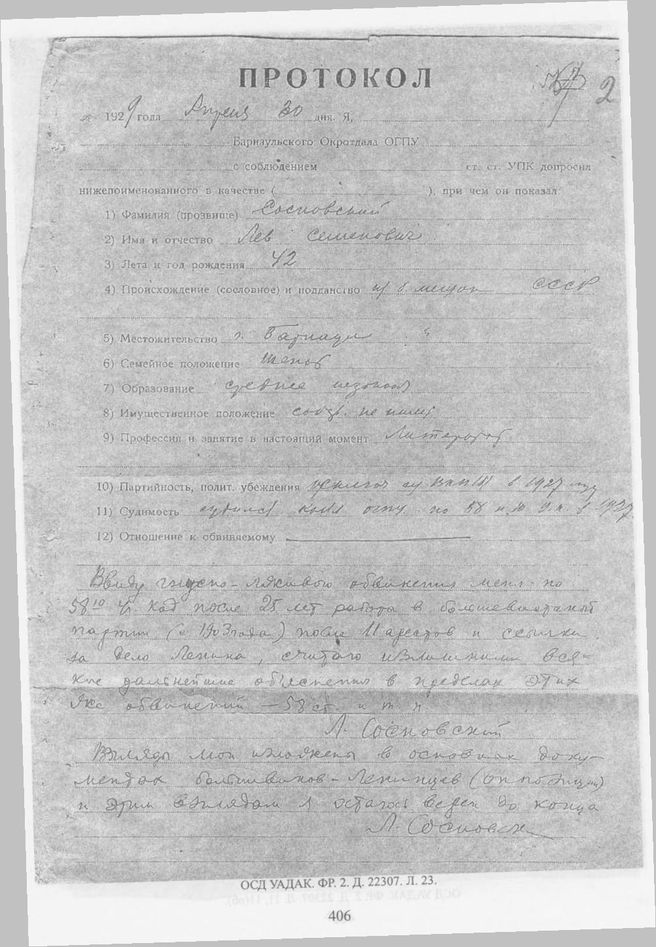 2
ПРОТОКОЛ
1929 года Апреля 30 дня. Я,
Барнаульского Окротдела ОГПУ
с соблюдением ст. ст. УПК допросил
нижепоименованного в качестве ( ), при чем он показал:
1) Фамилия (прозвище) Сосновский
2) Имя и отчество Лев Семенович
3) Лета и год рождения 42
4) Происхождение (сословное) и подданство из б. мещан СССР
5) Местожительство г. Барнаул
6) Семейное положение женат
7) Образование среднее
8) Имущественное положение не имел
9) Профессия и занятие в настоящий момент Литератор
10) Партийность, полит. убеждения в 1927 году
11) Судимость судился ОГПУ по 58 в 1927
12) Отношение к обвиняемому
Ввиду гнусно-лживого обвинения меня по
58 10 УК после 25 лет работы в большевистской
партии (с 1903 года) после 11 арестов и ссылки
за дело Ленина, считаю излишними вся-
кие дальнейшие объяснения в пределах этих
же обвинений – 58 ст. и т. п.
Л. Сосновский
Взгляды мои изложены в основных доку-
ментах большевиков-Ленинцев (оппозиции)
и этим взглядам я остаюсь верен до конца
Л. Сосновск
ОСД УАДАК. ФР. 2. Д. 22307. Л. 23.
406